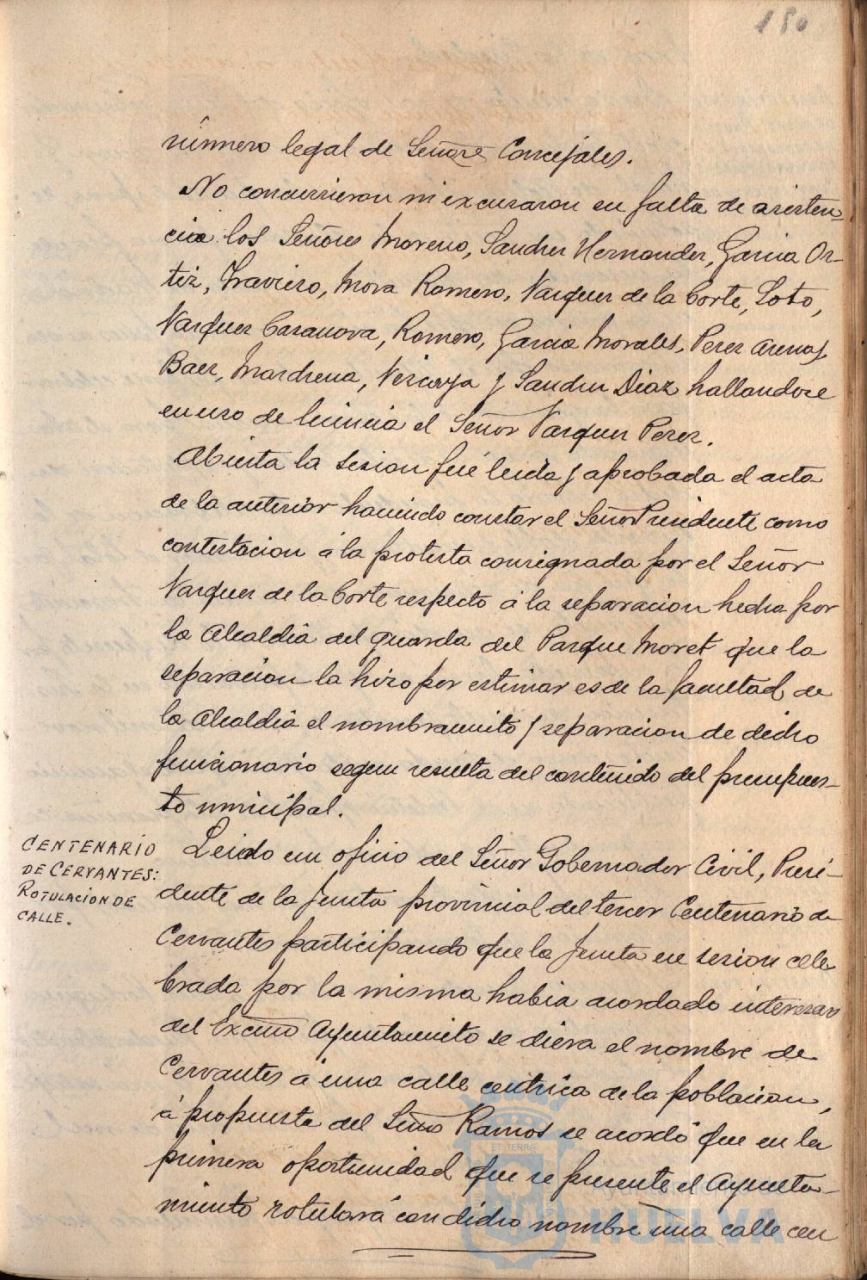 150
número legal de Señores Concejales.
No concurrieron ni excusaron su falta de asisten-
cia los Señores Moreno, Sanchez Hernandez, Garcia Or-
tiz, Traviezo, Mora Romero, Vazquez de la Corte, Soto,
Vazquez Casanova, Romero, Garcia Morales, Perez Arenas,
Baez, Marchena, Vizcaya y Sanchez Diaz hallandose
en uso de licencia el Señor Vazquez Perez.
Abierta la sesion fué leida y aprobada el acta
de la anterior haciendo constar el Señor Presidente como
contestacion á la protesta consignada por el Señor
Vazquez de la Corte respecto á la separacion hecha por
la Alcaldia del guarda del Parque Moret que la
separacion la hizo por estimar es de la facultad de
la Alcaldia el nombramiento y separacion de dicho
funcionario segun resulta del contenido del presupues-
to municipal.
CENTENARIO
DE CERVANTES:
ROTULACION DE
CALLE.
Leido un oficio del Señor Gobernador Civil, Presi-
dente de la Junta provincial del tercer Centenario de
Cervantes participando que la Junta en sesion cele
brada por la misma habia acordado interesar
del Excmo Ayuntamiento se diera el nombre de
Cervantes á una calle centrica de la poblacion,
á propuesta del Señor Ramos se acordó que en la
primera oportunidad que se presente el Ayunta-
miento rotulará con dicho nombre una calle cen
HUELVA